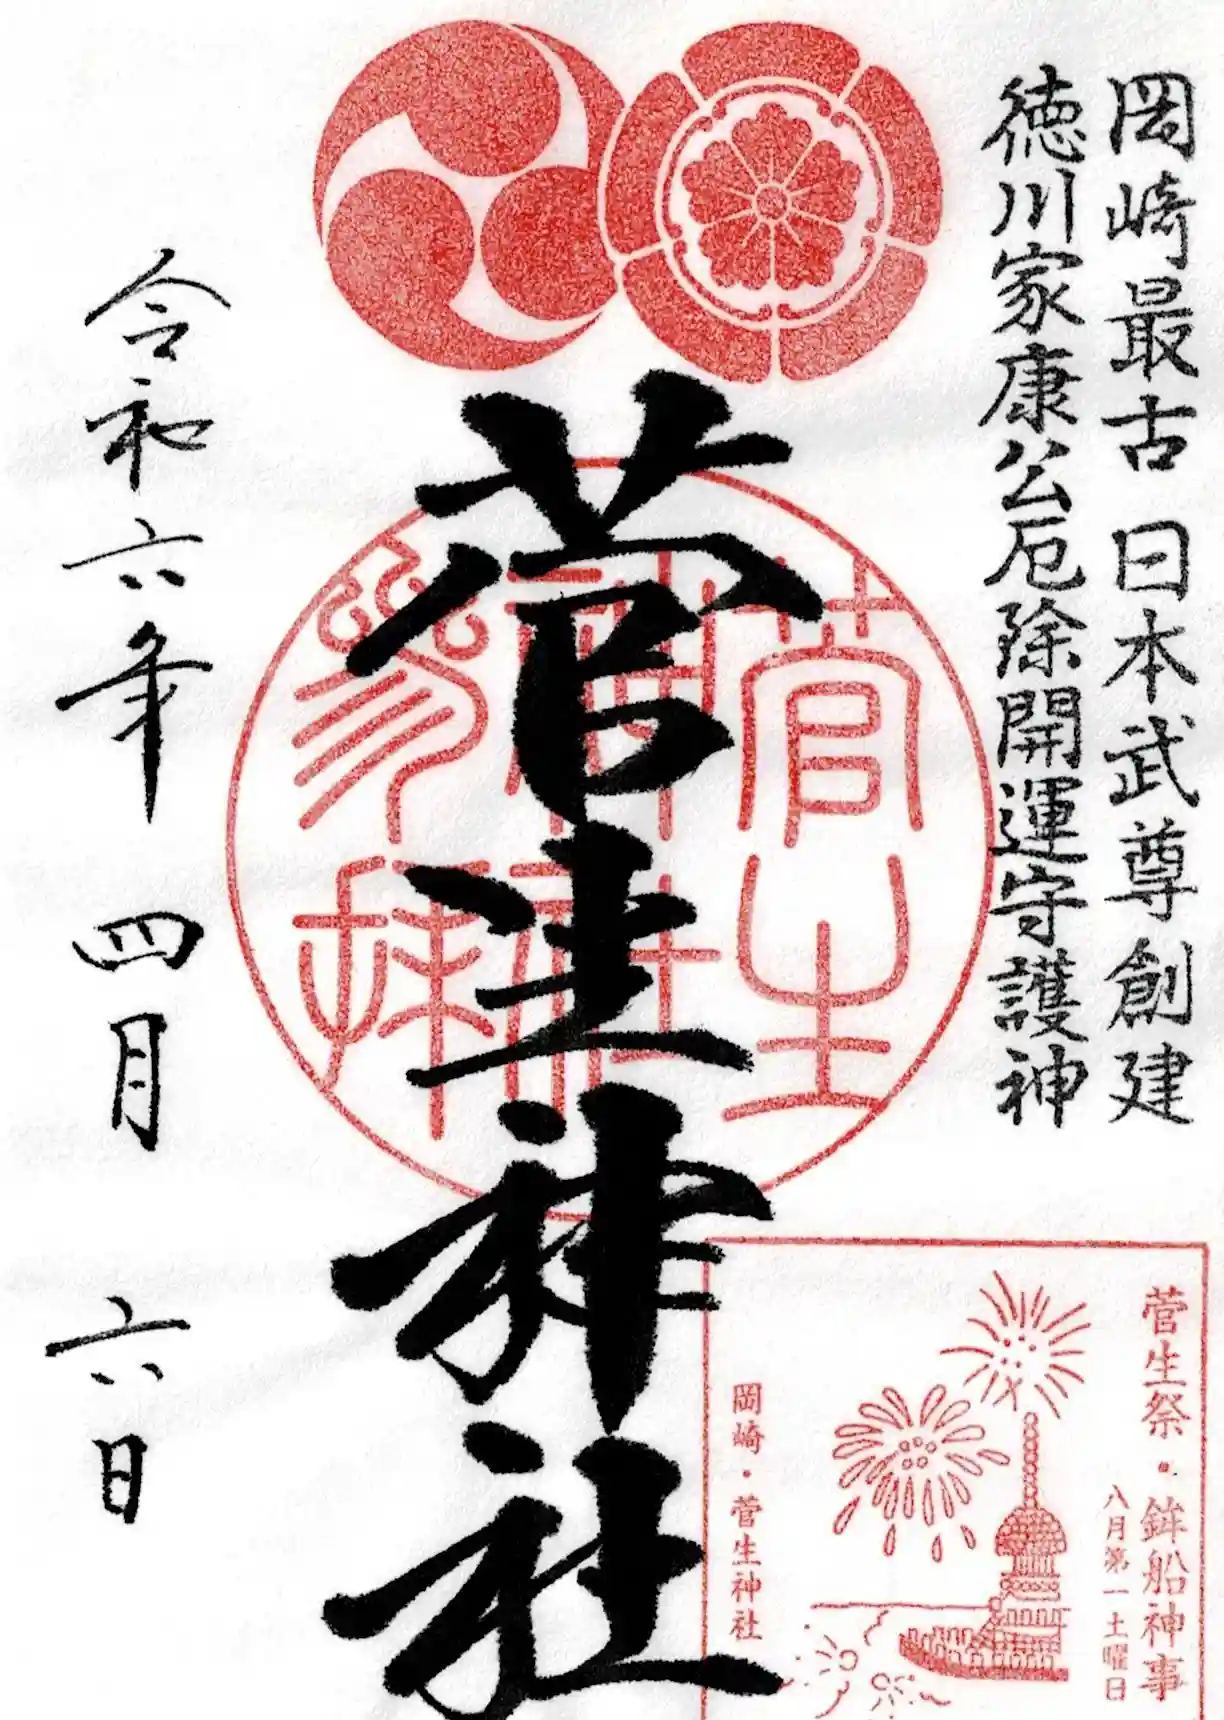 岡崎最古 日本武尊創建
徳川家康公厄除開運守護神
菅生神社
令和六年四月六日
菅生
神社
參拝
菅生祭・鉾船神事
八月第一土曜日
岡崎・菅生神社